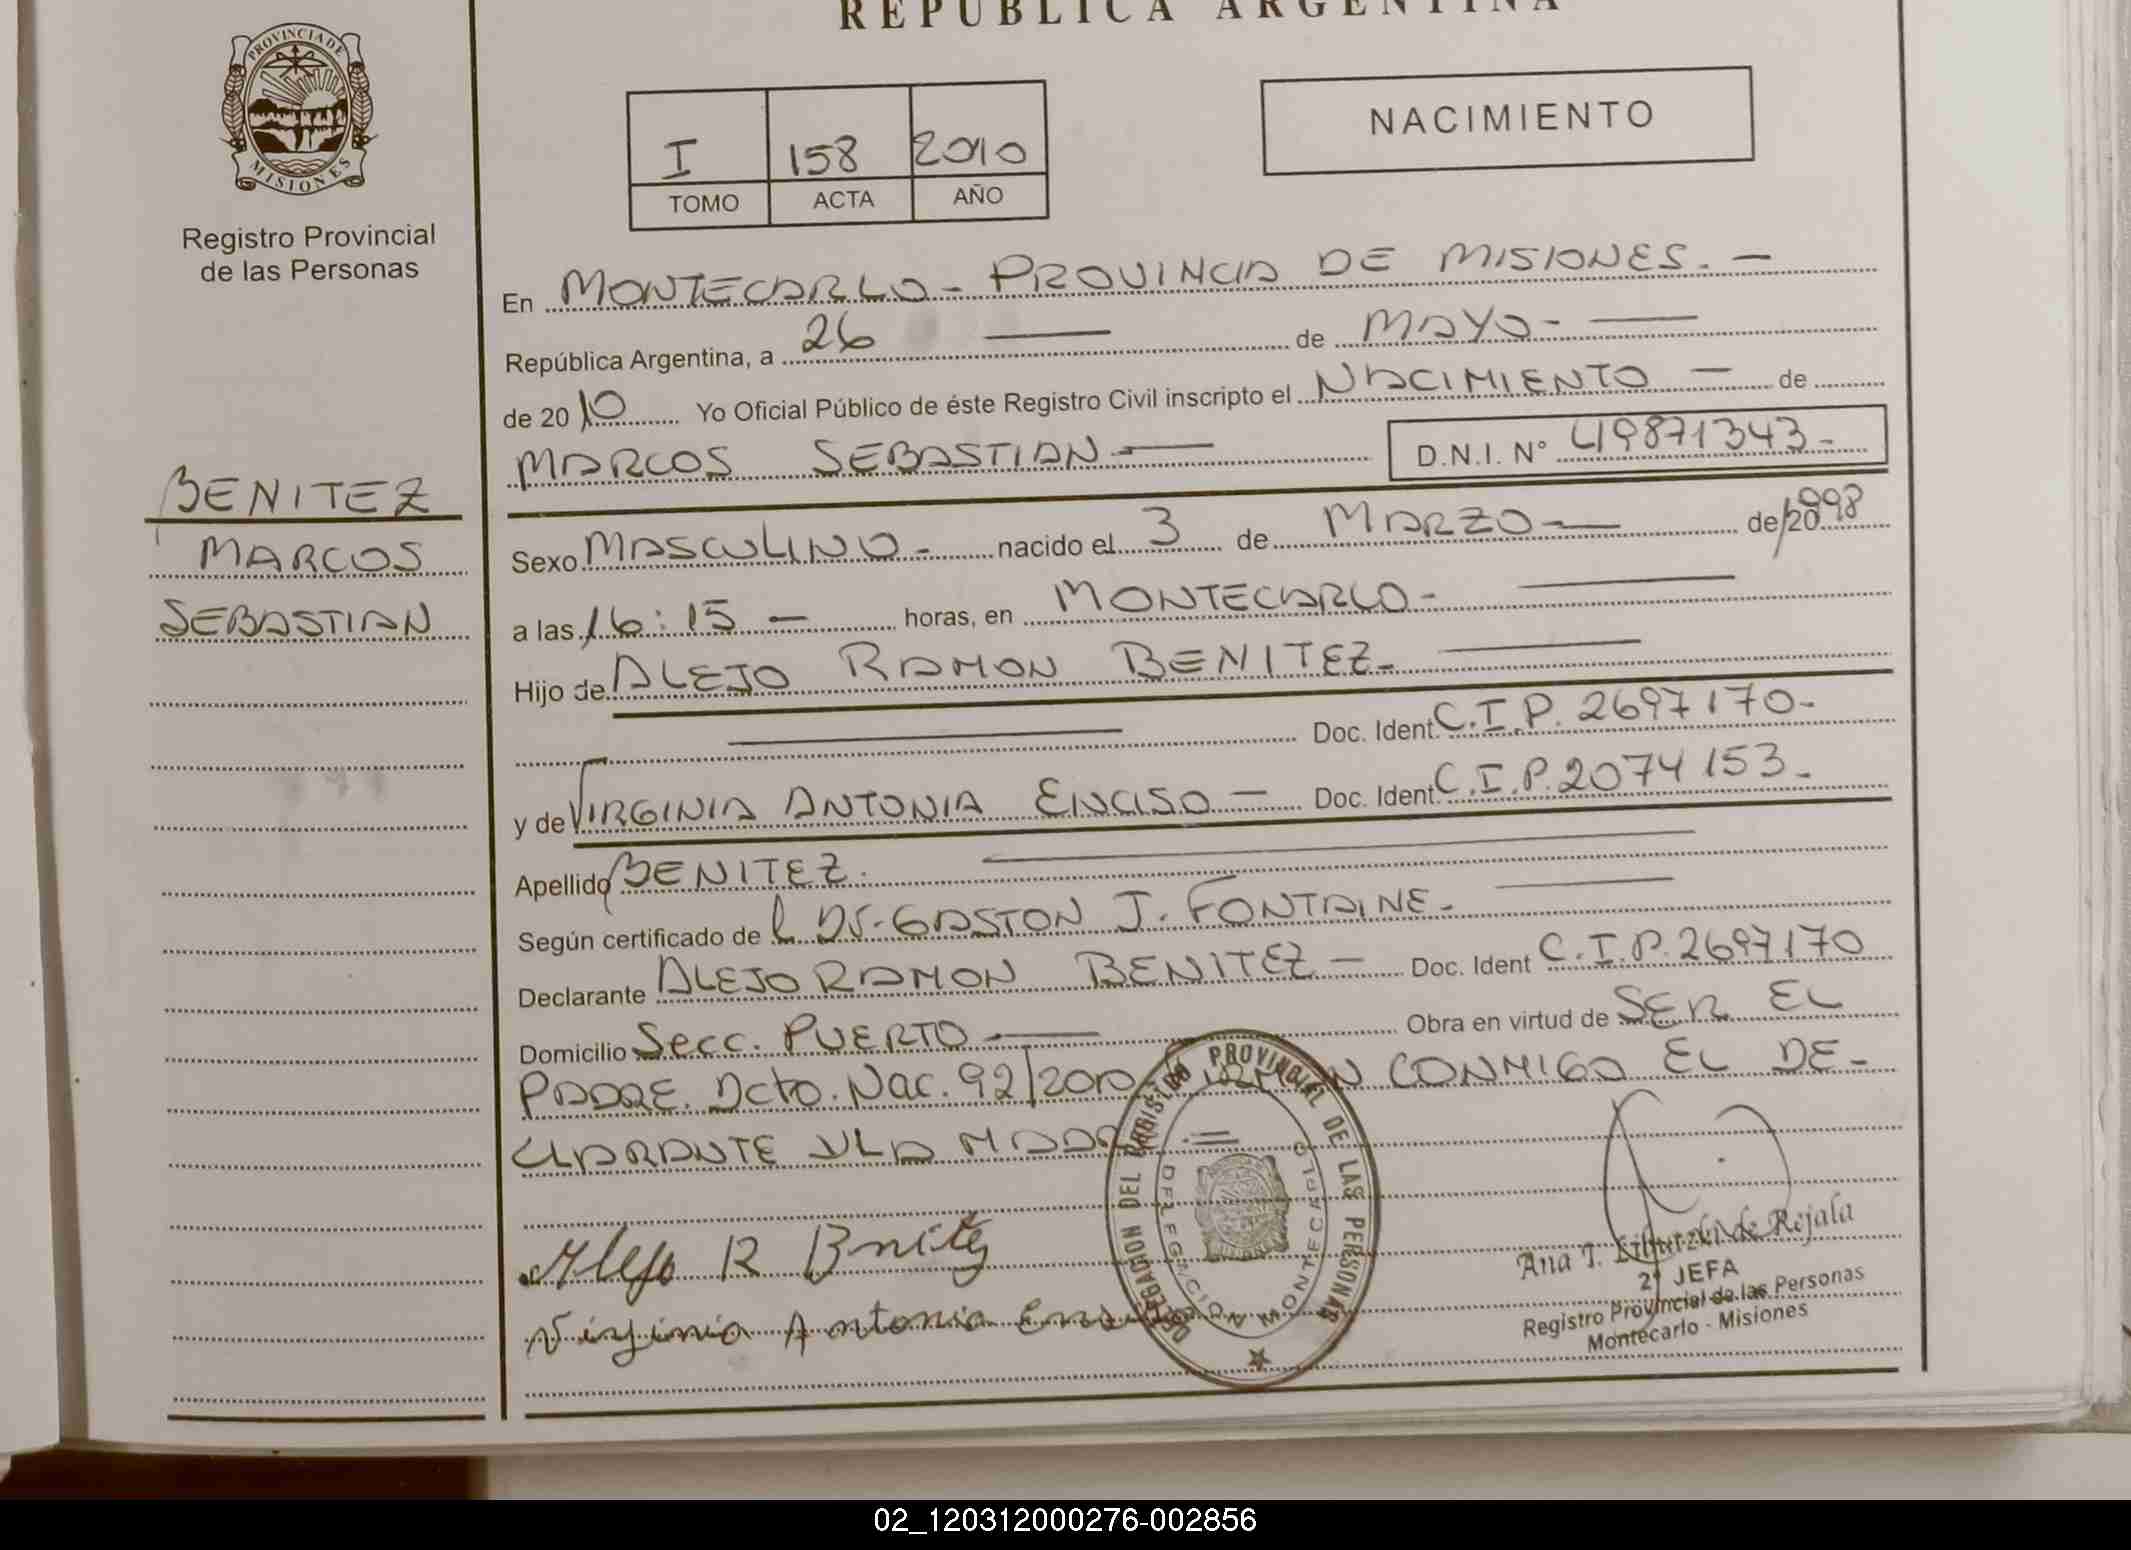 REPUBLICA ARGENTINA
PROVINCIA DE
MISIONES
Registro Provincial
de las Personas
I 158 2010
TOMO ACTA AÑO
NACIMIENTO
En MONTECARLO - PROVINCIA DE MISIONES. —
República Argentina, a 26 — de MAYO - —
de 20 10 Yo Oficial Público de éste Registro Civil inscripto el NACIMIENTO — de
MARCOS SEBASTIAN — D.N.I. Nº 49871343 -
BENITEZ
MARCOS
SEBASTIAN
Sexo MASCULINO - nacido el 3 de MARZO — de /20 1998
a las 16:15 — horas, en MONTECARLO - —
Hijo de ALEJO RAMON BENITEZ - —
— Doc. Ident. C.I.P. 2697170 -
y de VIRGINIA ANTONIA ENCISO — Doc. Ident. C.I.P. 2074153 -
Apellido BENITEZ. —
Según certificado de l Dr. GASTON J. FONTAINE - —
Declarante ALEJO RAMON BENITEZ — Doc. Ident C.I.P. 2697170
Domicilio Secc. PUERTO — Obra en virtud de SER EL
PADRE. Dcto. Nac. 92/2010 FIRMAN CONMIGO EL DE-
CLARANTE Y LA MADRE
DELEGACION DEL REGISTRO PROVINCIAL DE LAS PERSONAS
MONTECARLO
Alejo R Benitez
Virginia Antonia Enciso
Ana T. de Rejala
2º JEFA
Registro Provincial de las Personas
Montecarlo - Misiones
02_120312000276-002856